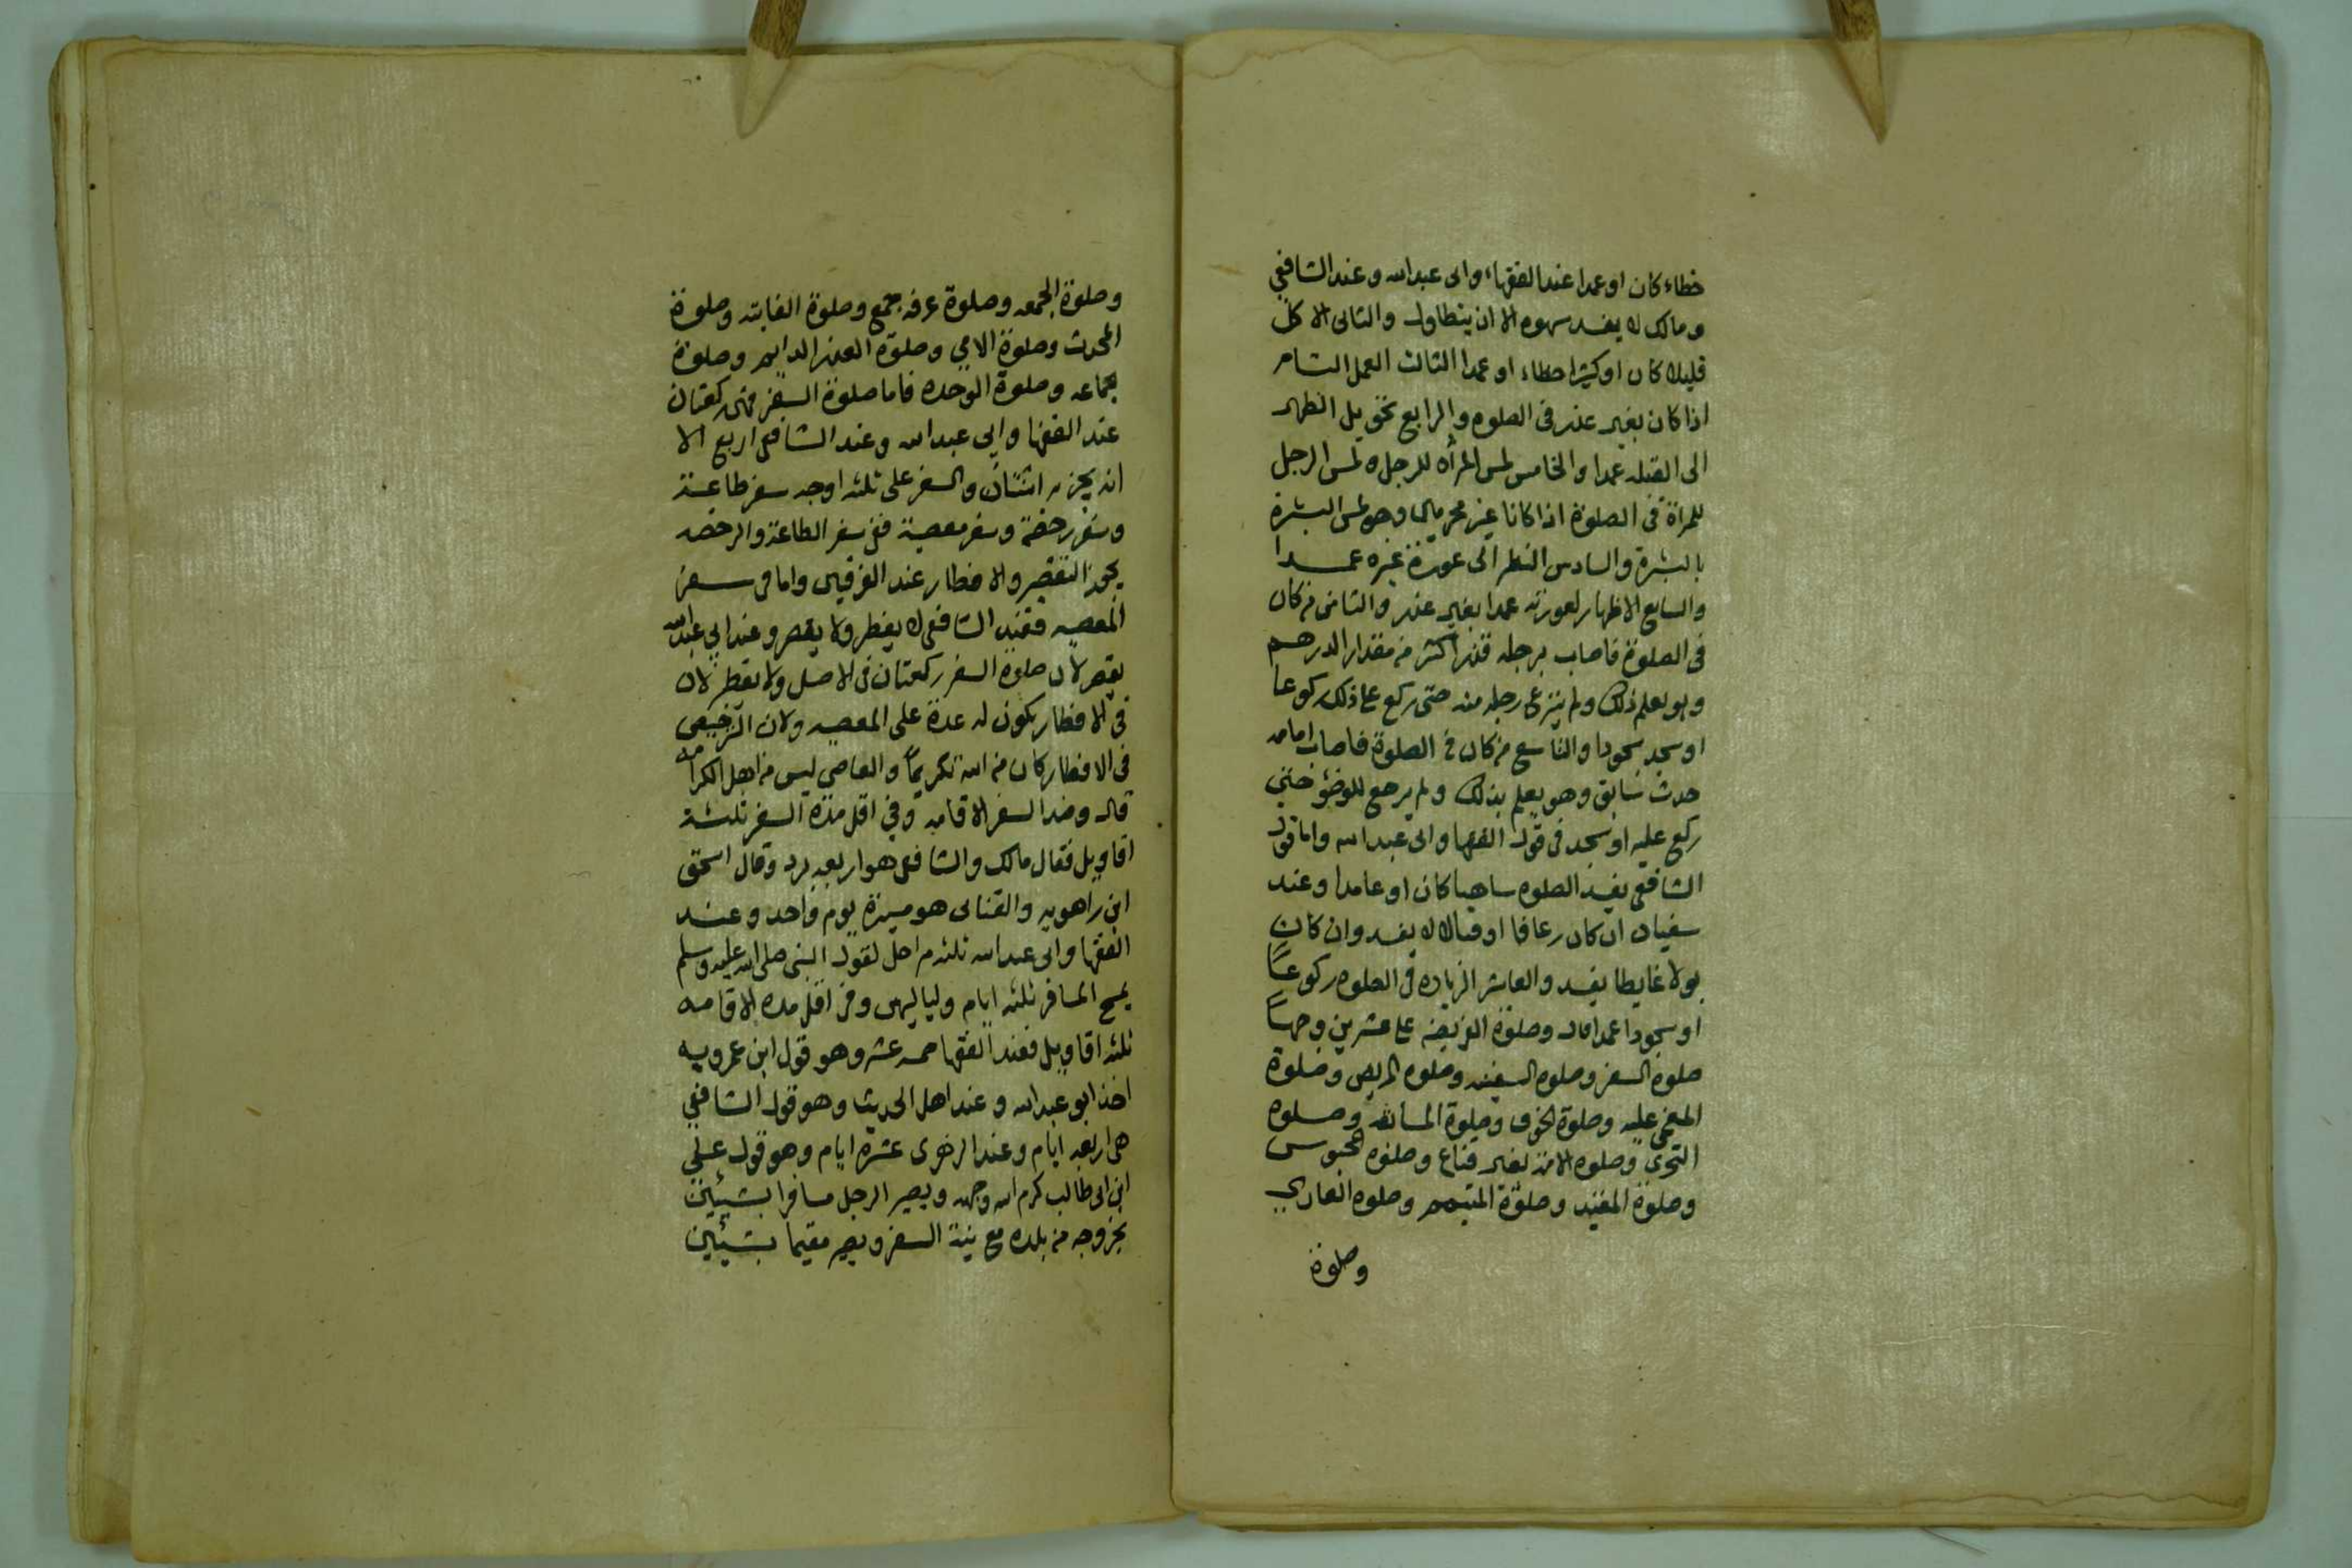 خطاء كان او عمدا عند الفقهاء وابى عبد الله وعند الشافعي
ومالك لا يفسد سهوه الا ان يتطاول والثانى الاكل
قليلا كان او كثيرا خطاء او عمدا الثالث العمل التام
اذا كان بغير عذر فى الصلوه والرابع تحويل الظهر
الى القبله عمدا والخامس لمس المرأه للرجل ولمس الرجل
للمرأة فى الصلوة اذا كانا غير محرمين وهو لمس البشرة
بالبشرة والسادس النظر الى عورة غيره عمدا
والسابع الاظهار لعورته عمدا بغير عذر والثامن من كان
فى الصلوة فاصاب برجله قذر اكثر من مقدار الدرهم
وهو يعلم ذلك ولم ينزع رجله منه حتى ركع على ذلك ركوعا
او سجد سجودا والتاسع من كان فى الصلوة فاصاب امامه
حدث سابق وهو يعلم بذلك ولم يرجع للوضؤ حتى
ركع عليه او سجد فى قول الفقها وابى عبد الله واما قول
الشافعى يفسد الصلوه ساهيا كان او عامدا وعند
سفيان ان كان رعافا او قيالا لا يفسد وان كان
بولا غايطا يفسد والعاشر الزياده فى الصلوه ركوعاً
او سجودا عمدا قال وصلوة الفريضه على عشرين وجهاً
صلوه السفر وصلوه السفينه وصلوه المريض وصلوة
المغمى عليه وصلوة الخوف وصلوة المسايفه وصلوه
التحرى وصلوه الامة بغير قناع وصلوه المحبوس
وصلوة المقيد وصلوة المتيمم وصلوه العاري
وصلوة
وصلوة الجمعه وصلوة عرفه بجمع وصلوة الفايته وصلوة
المحدث وصلوة الامي وصلوة العذر الدايم وصلوة
بجماعه وصلوة الوحده فاما صلوة السفر فهى ركعتان
عند الفقها وابى عبد الله وعند الشافعى اربع الا
انه يجزيه اثنتان والسفر على ثلثه اوجه سفر طاعة
وسفر رخصة وسفر معصية ففى سفر الطاعة والرخصه
يجوز التقصير والافطار عند الفريقين واما فى سفر
المعصيه فعند الشافعى لا يفطر ولا يقصر وعند ابي عبد الله
يقصر لان صلوة السفر ركعتان فى الاصل ولا يفطر لان
فى الافطار يكون له عدة على المعصيه ولان الترخيص
فى الافطار كان من الله تكريماً والعاصى ليس من اهل الكرامه
قال وضد السفر الاقامه وفي اقل مدة السفر ثلثة
اقاويل فقال مالك والشافعى هو اربعه برد وقال اسحق
ابن راهويه والقتابى هو مسيرة يوم واحد وعند
الفقها وابى عبد الله ثلثه مراحل لقول النبى صلى الله عليه وسلم
يمسح المسافر ثلثه ايام ولياليهن وفى اقل مده الاقامه
ثلثه اقاويل فعند الفقها خمسه عشر وهو قول ابن عمر وبه
اخذ ابو عبد الله وعند اهل الحديث وهو قول الشافعي
هى اربعه ايام وعند عشرة ايام وهو قول علي
ابن ابى طالب كرم الله وجهه ويصير الرجل مسافرا بشيئين
بخروجه من بلده مع نية السفر ويصير مقيما بشيئين